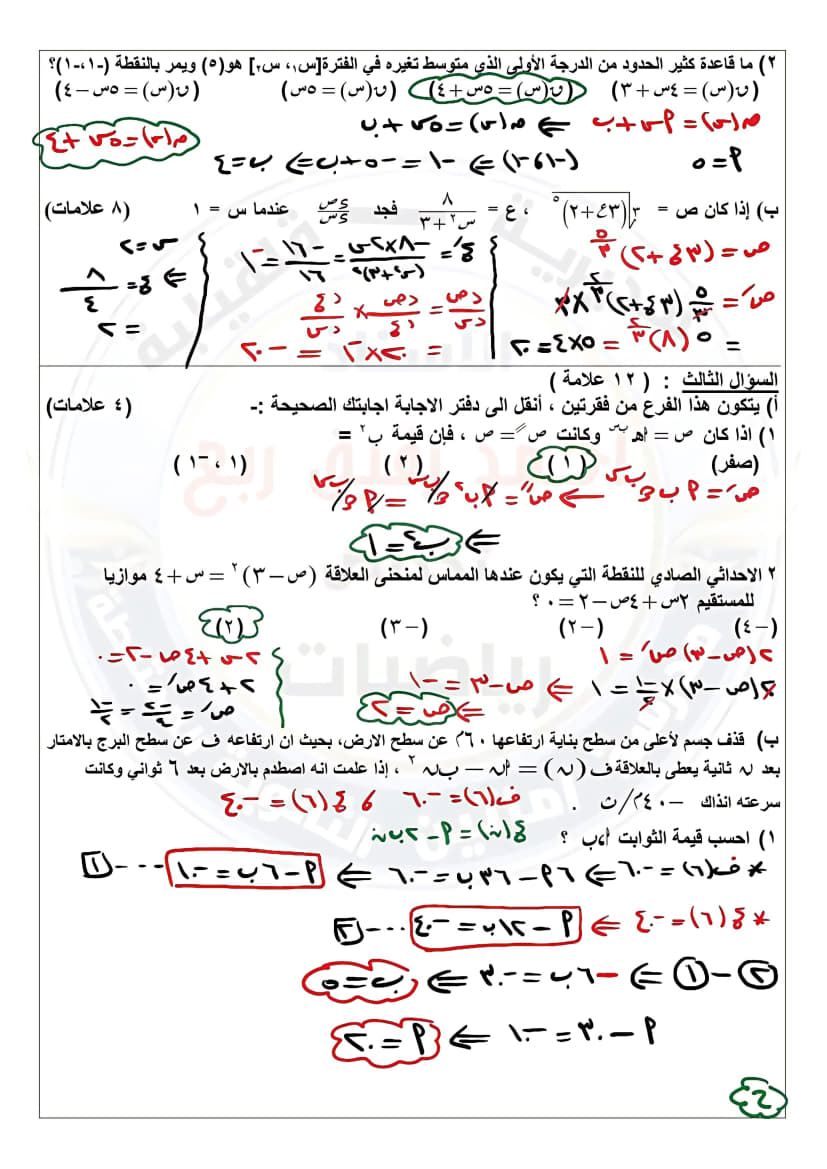 ٢) ما قاعدة كثير الحدود من الدرجة الأولى الذي متوسط تغيره في الفترة[س١، س٢] هو(٥) ويمر بالنقطة (-١،-١)؟
(ق(س) = ٤س + ٣) (ق(س) = ٥س + ٤) (ق(س) = ٥س) (ق(س) = ٥س - ٤)
ق(س) = أس + ب ⇐ ق(س) = ٥س + ب
ق(س) = ٥س + ٤
أ = ٥ (-١، -١) ⇐ -١ = -٥ + ب ⇐ ب = ٤
ب) إذا كان ص = ∛(٣ع+٢)^٥ ، ع = ٨/(س٢+٣) فجد ءص/ءس عندما س = ١ (٨ علامات)
ص = (٣ع+٢)^(٥/٣)
صَ = ٥/٣ (٣ع+٢)^(٢/٣) × ٣
= ٥ (٨)^(٢/٣) = ٥×٤ = ٢٠
عَ = -٨×٢س/(س٢+٣)٢ = -١٦/١٦ = -١
دص/دس = دص/دع × دع/دس
= ٢٠ × -١ = -٢٠
⇐ ع = ٨/٤
= ٢
السؤال الثالث : ( ١٢ علامة )
أ) يتكون هذا الفرع من فقرتين ، أنقل الى دفتر الاجابة اجابتك الصحيحة :- (٤ علامات)
١) اذا كان ص = أهـ^ب س وكانت ص ً = ص ، فإن قيمة ب٢ =
(صفر) (١) (٢) (١ ، -١)
⇐ ب٢ = ١
٢ الاحداثي الصادي للنقطة التي يكون عندها المماس لمنحنى العلاقة (ص - ٣)٢ = س + ٤ موازيا
للمستقيم ٢س + ٤ص - ٢ = ٠ ؟
(-٤) (-٢) (-٣) (٢)
٢(ص-٣)صَ = ١
٢(ص-٣)× -١/٢ = ١ ⇐ ص-٣ = -١
⇐ ص = ٢
٢س + ٤ص - ٢ = ٠
٢ + ٤صَ = ٠
صَ = -٢/٤ = -١/٢
ب) قذف جسم لأعلى من سطح بناية ارتفاعها ٦٠م عن سطح الارض، بحيث ان ارتفاعه ف عن سطح البرج بالامتار
بعد ن ثانية يعطى بالعلاقة ف(ن) = أن - ب ن٢ ، إذا علمت انه اصطدم بالارض بعد ٦ ثواني وكانت
سرعته انذاك -٤٠م/ث .
ف(٦) = -٦٠ ، ع(٦) = -٤٠
١) احسب قيمة الثوابت أ،ب ؟
ع(ن) = أ - ٢ب ن
* ف(٦) = -٦٠ ⇐ ٦أ - ٣٦ب = -٦٠ ⇐ أ - ٦ب = -١٠ ...١
* ع(٦) = -٤٠ ⇐ أ - ١٢ب = -٤٠ ...٢
٢ - ١ ⇐ -٦ب = -٣٠ ⇐ ب = ٥
أ - ٣٠ = -١٠ ⇐ أ = ٢٠
٤